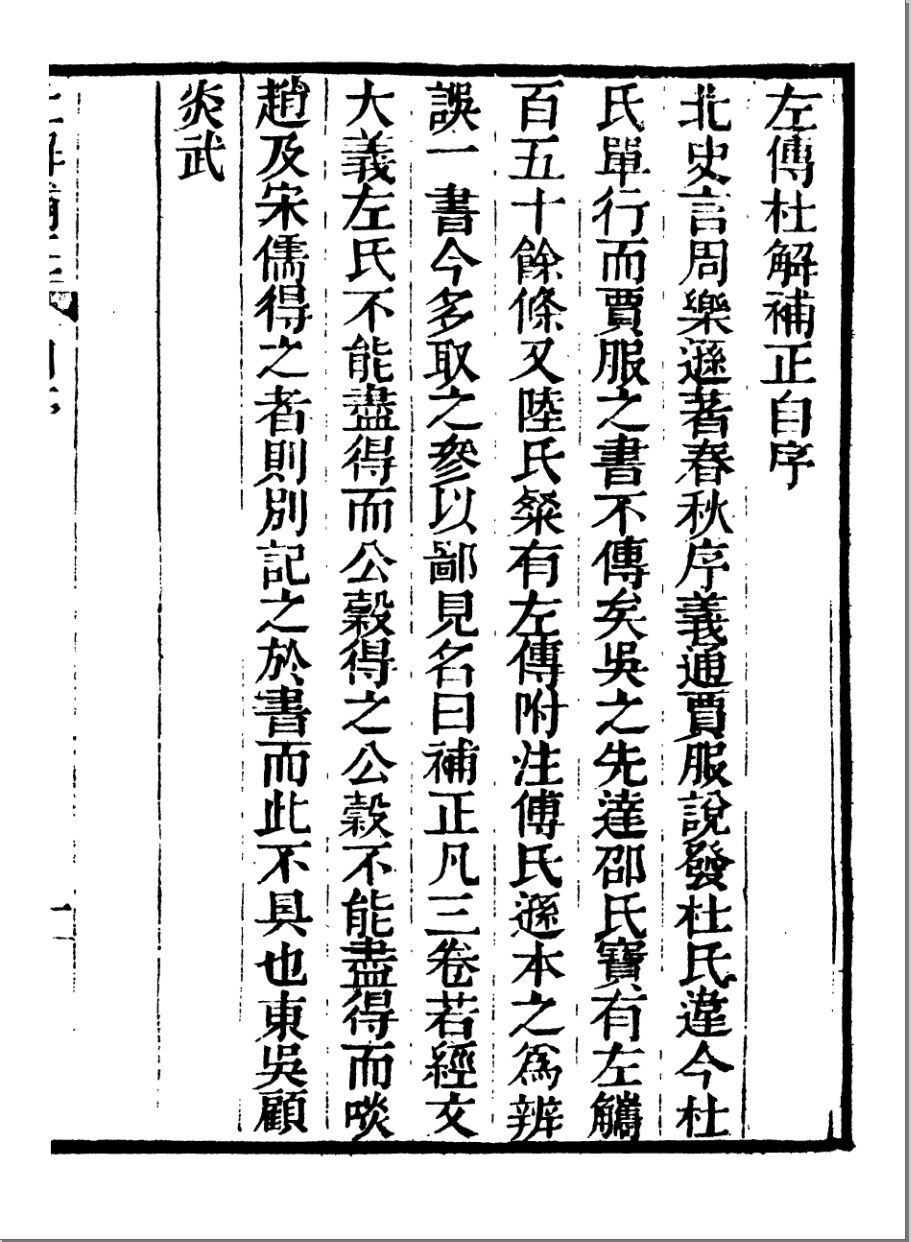 左傳杜解補正自序
北史言周樂遜著春秋序義通賈服說發杜氏違今杜
氏單行而賈服之書不傳矣吳之先達邵氏寶有左觿
百五十餘條又陸氏粲有左傳附注傅氏遜本之爲辨
誤一書今多取之參以鄙見名曰補正凡三卷若經文
大義左氏不能盡得而公穀得之公穀不能盡得而啖
趙及宋儒得之者則別記之於書而此不具也東吳顧
炎武
一